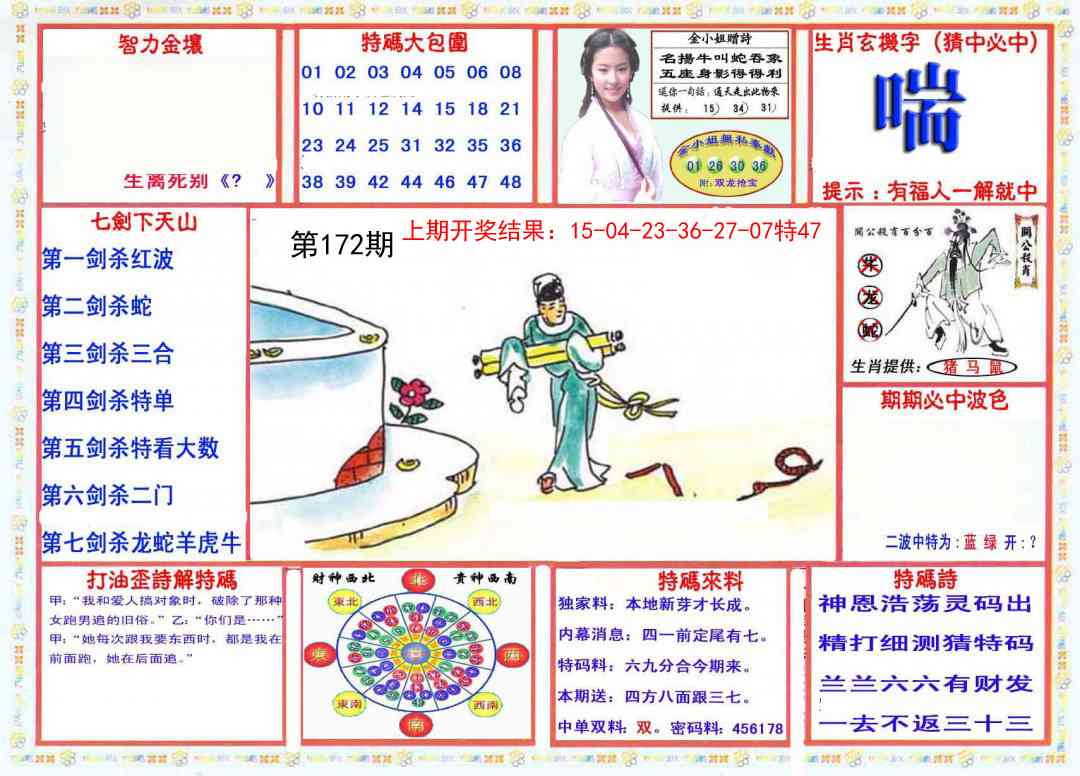 智力金壤
生离死别《? 》
特碼大包圍
01 02 03 04 05 06 08
10 11 12 14 15 18 21
23 24 25 31 32 35 36
38 39 42 44 46 47 48
金小姐赠詩
名揚牛叫蛇吞象
五座身影得得利
送你一句話:通天走出此物來
提供: 15) 34) 31)
金小姐無私奉獻
01 26 30 36
附:双龙抢宝
生肖玄機字(猜中必中)
喘
提示:有福人一解就中
七劍下天山
第一剑杀红波
第二剑杀蛇
第三剑杀三合
第四剑杀特单
第五剑杀特看大数
第六剑杀二门
第七剑杀龙蛇羊虎牛
第172期
上期开奖结果: 15-04-23-36-27-07特47
關公殺肖百分百
關公殺肖
牛
龙
蛇
生肖提供: 猪 马 鼠
期期必中波色
二波中特为:蓝 绿 开:?
打油歪詩解特碼
甲:“我和爱人搞对象时，破除了那种
女跑男追的旧俗。”乙:“你们是……”
甲:“她每次跟我要东西时，都是我在
前面跑，她在后面追。”
財神西北
貴神西南
北
東北
西北
東
西
東南
西南
南
特碼來料
独家料: 本地新芽才长成。
内幕消息: 四一前定尾有七。
特码料: 六九分合今期来。
本期送: 四方八面跟三七。
中单双料: 双。密码料: 456178
特碼詩
神恩浩荡灵码出
精打细测猜特码
兰兰六六有财发
一去不返三十三